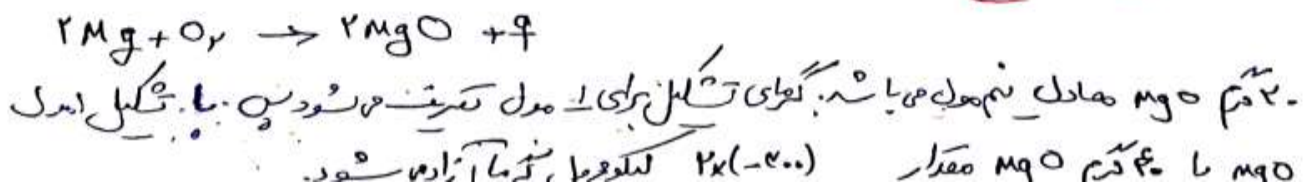 ۲Mg + O₂ → ۲MgO + q
۲۰ گرم MgO معادل نیم مول می باشد. گرمای تشکیل برای ۱ مول تعریف می شود پس با تشکیل ۱ مول
MgO یا ۴۰ گرم MgO مقدار ۲×(-۳۰۰) کیلوژول گرما آزاد می شود.